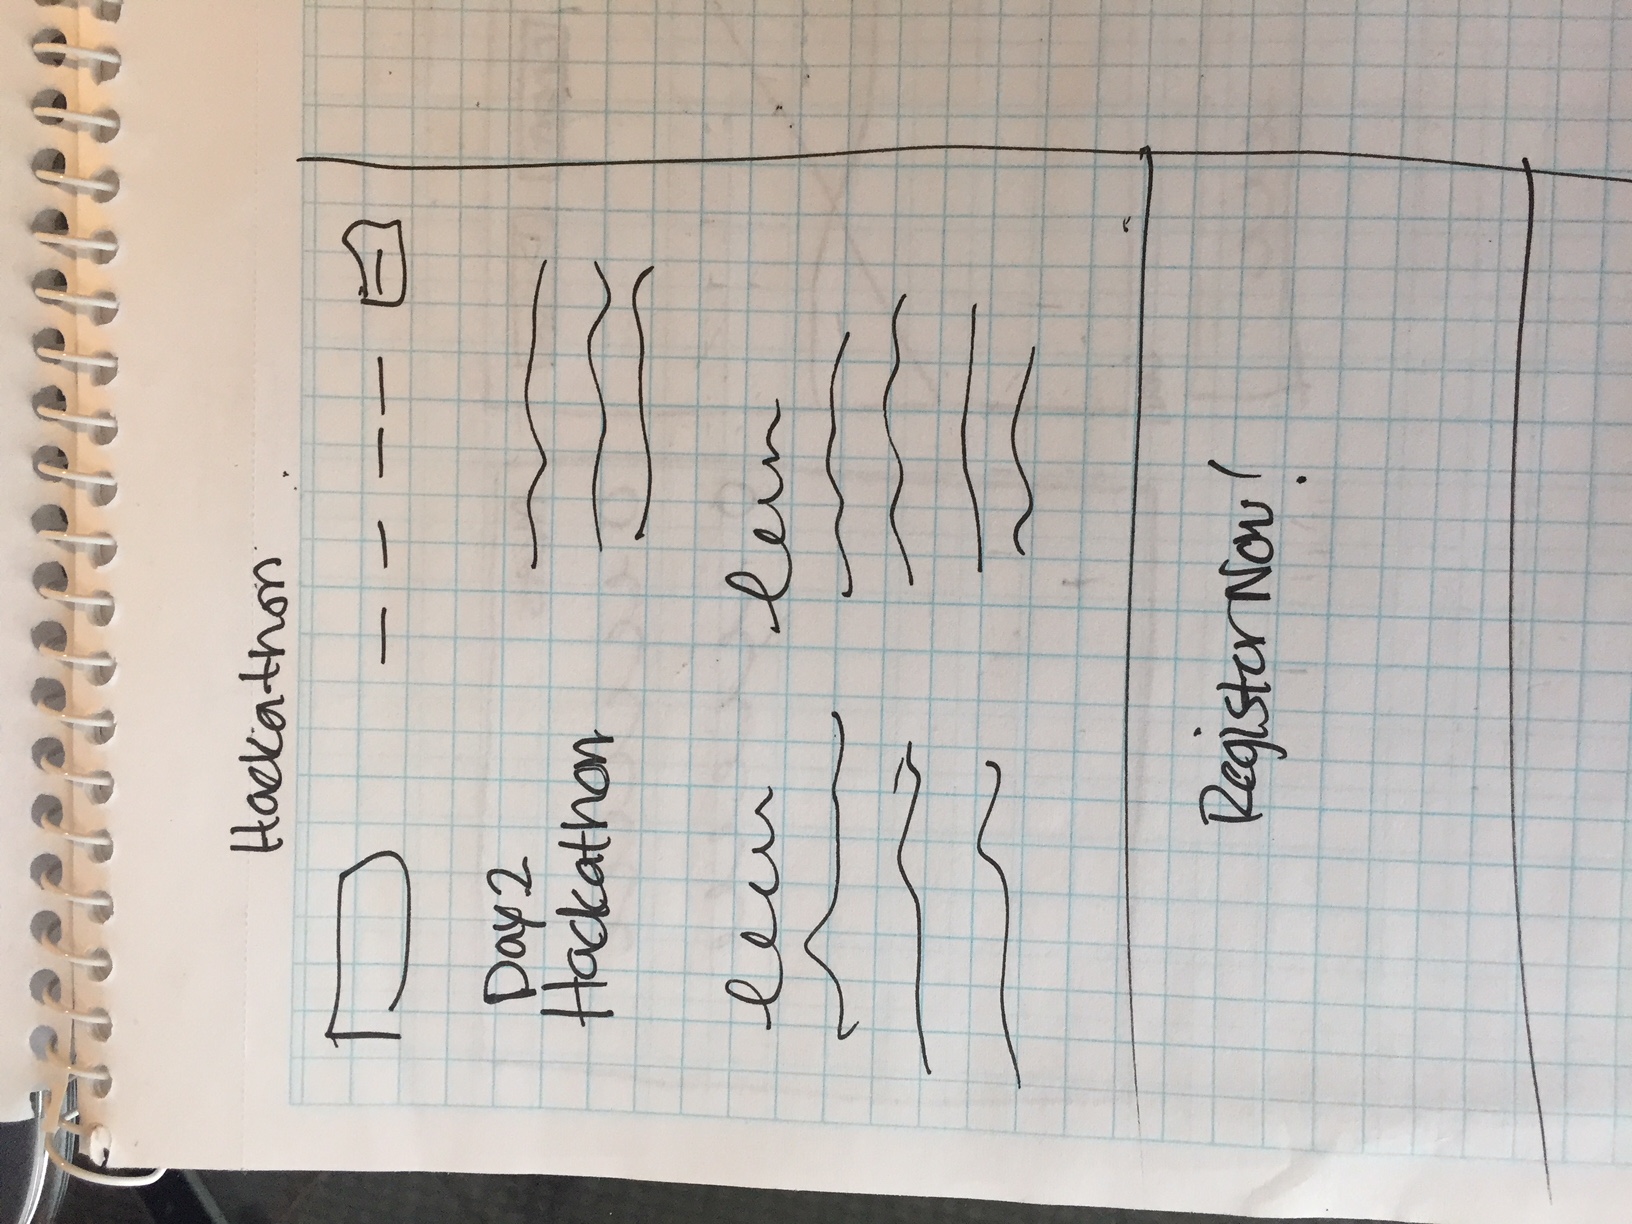 Hackathon
Day 2
Hackathon
Register Now!